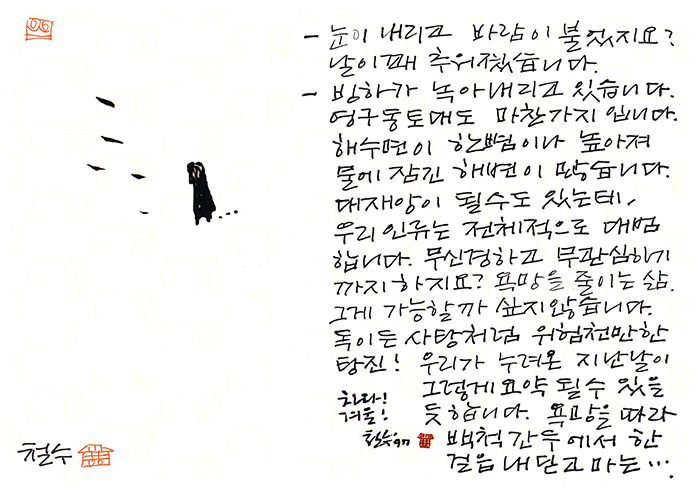 - 눈이 내리고 바람이 불었지요?
날이 꽤 추워졌습니다.
- 빙하가 녹아내리고 있습니다.
영구동토대도 마찬가지입니다.
해수면이 한뼘이나 높아져
물에 잠긴 해변이 많습니다.
대재앙이 될수도 있는데,
우리 인류는 전체적으로 대범
합니다. 무신경하고 무관심하기
까지 하지요? 욕망을 줄이는 삶.
그게 가능할까 싶지않습니다.
독이든 사탕처럼 위험천만한
탕진! 우리가 누려온 지난날이
그렇게 요약 될수 있을
듯 합니다. 욕망을 따라
백척간두에서 한
걸음 내딛고 마는…
겨울!
철수
철수